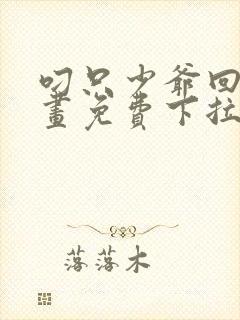 叼只少爷回
畫免費下拉
落落木